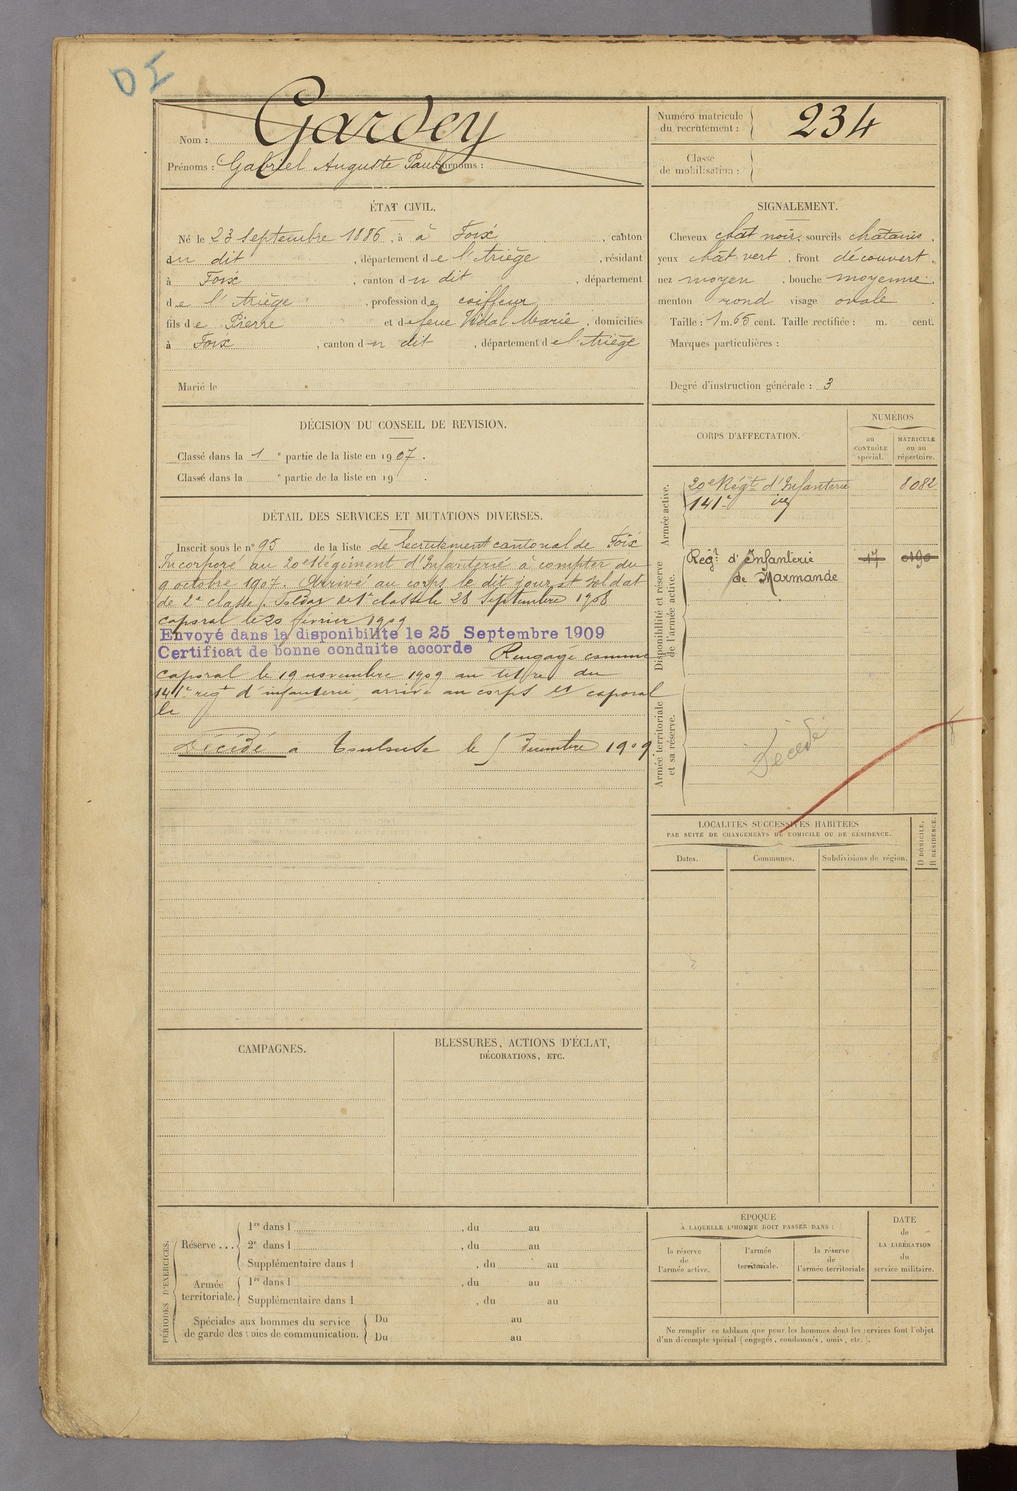 DI
Nom : Gardey
Prénoms : Gabriel Auguste Paul Surnoms :
Numéro matricule du recrutement : 234
Classe de mobilisation :
ÉTAT CIVIL.
Né le 23 Septembre 1886, à à Foix, canton
du dit, département de l'Ariège, résidant
à Foix, canton du dit, département
de l'Ariège, profession de coiffeur
fils de Pierre et de feue Vidal Marie, domiciliés
à Foix, canton du dit, département de l'Ariège
Marié le
SIGNALEMENT.
Cheveux chât noir, sourcils châtains,
yeux chât vert, front découvert,
nez moyen, bouche moyenne,
menton rond visage ovale.
Taille : 1 m. 65 cent. Taille rectifiée : m. cent.
Marques particulières :
Degré d'instruction générale : 3
DÉCISION DU CONSEIL DE REVISION.
Classé dans la 1 e partie de la liste en 1907.
Classé dans la e partie de la liste en 19
DÉTAIL DES SERVICES ET MUTATIONS DIVERSES.
Inscrit sous le n° 95 de la liste de recrutement cantonal de Foix
Incorporé au 20e Régiment d'Infanterie à compter du
9 octobre 1907. Arrivé au corps le dit jour, et soldat
de 2e classe. Soldat de 1e classe le 28 Septembre 1908
caporal le 20 février 1909
Envoyé dans la disponibilité le 25 Septembre 1909
Certificat de bonne conduite accordé Rengagé comme
caporal le 19 novembre 1909 au titre du
141e régt d'infanterie arrivé au corps et caporal
le
Décédé a Toulouse le 5 Décembre 1909
CORPS D'AFFECTATION.
NUMÉROS
au CONTRÔLE spécial.
MATRICULE ou au répertoire.
Armée active.
20e Régt d'Infanterie 8082
141e id
Disponibilité et réserve de l'armée active.
Régt d'Infanterie 17 0190
de Marmande
Armée territoriale et sa réserve.
Décédé
LOCALITÉS SUCCESSIVES HABITÉES
PAR SUITE DE CHANGEMENTS DE DOMICILE OU DE RÉSIDENCE.
Dates. Communes. Subdivisions de région.
D DOMICILE.
R RÉSIDENCE.
CAMPAGNES.
BLESSURES, ACTIONS D'ÉCLAT,
DÉCORATIONS, ETC.
PÉRIODES D'EXERCICES.
Réserve ...
1re dans l , du au
2e dans l , du au
Supplémentaire dans l , du au
Armée territoriale.
1re dans l , du au
Supplémentaire dans l , du au
Spéciales aux hommes du service
de garde des voies de communication.
Du au
Du au
EPOQUE
À LAQUELLE L'HOMME DOIT PASSER DANS :
la réserve de l'armée active.
l'armée territoriale.
la réserve de l'armée territoriale
DATE de LA LIBÉRATION du service militaire.
Ne remplir ce tableau que pour les hommes dont les services font l'objet
d'un décompte spécial (engagés, condamnés, omis, etc.).